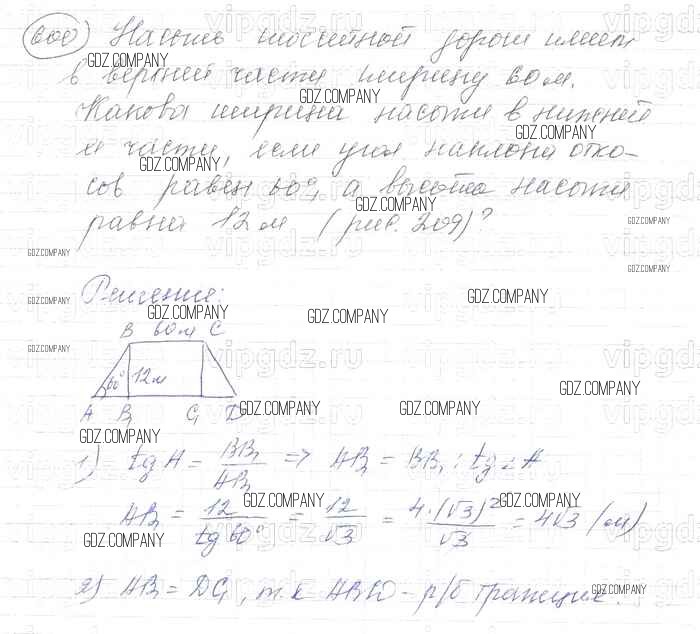 600) Насыпь шоссейной дороги имеет
в верхней части ширину 60 м.
Какова ширина насыпи в нижней
её части, если угол наклона отко-
сов равен 60°, а высота насыпи
равна 12 м (рис. 209)?
Решение:
B 60 м C
60° 12 м
A B₁ C₁ D
1) tg A = BB₁/AB₁ => AB₁ = BB₁ : tg ∠A
AB₁ = 12/tg 60° = 12/√3 = 4·(√3)²/√3 = 4√3 (м)
2) AB₁ = DC₁, т.к ABCD - р/б трапеция.
GDZ.COMPANY
vipgdz.ru